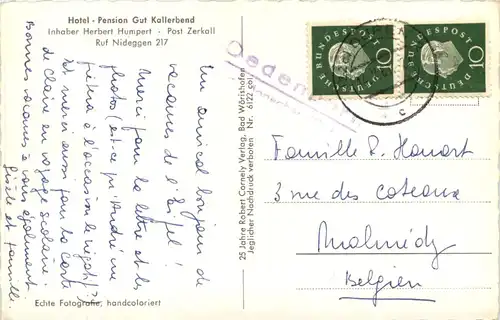 Hotel - Pension Gut Kallerbend
Inhaber Herbert Humpert · Post Zerkall
Ruf Nideggen 217
Un amical bonjour de
vacances de l'Eifel!
Merci pour la lettre et les
photos (est-ce qu'André me
prêtera à l'occasion le négatif?)
Et merci aussi pour la carte
de Claire en voyage scolaire.
Bonnes vacances à vous également.
Gisèle et famille.
Echte Fotografie, handcoloriert
25 Jahre Robert Cornely Verlag, Bad Wörishofen
Jeglicher Nachdruck verboten Nr. 6122 col
DEUTSCHE BUNDESPOST
10
DEUTSCHE BUNDESPOST
10
c
Famille P. Honart
3 rue des coteaux
Malmédy
Belgien